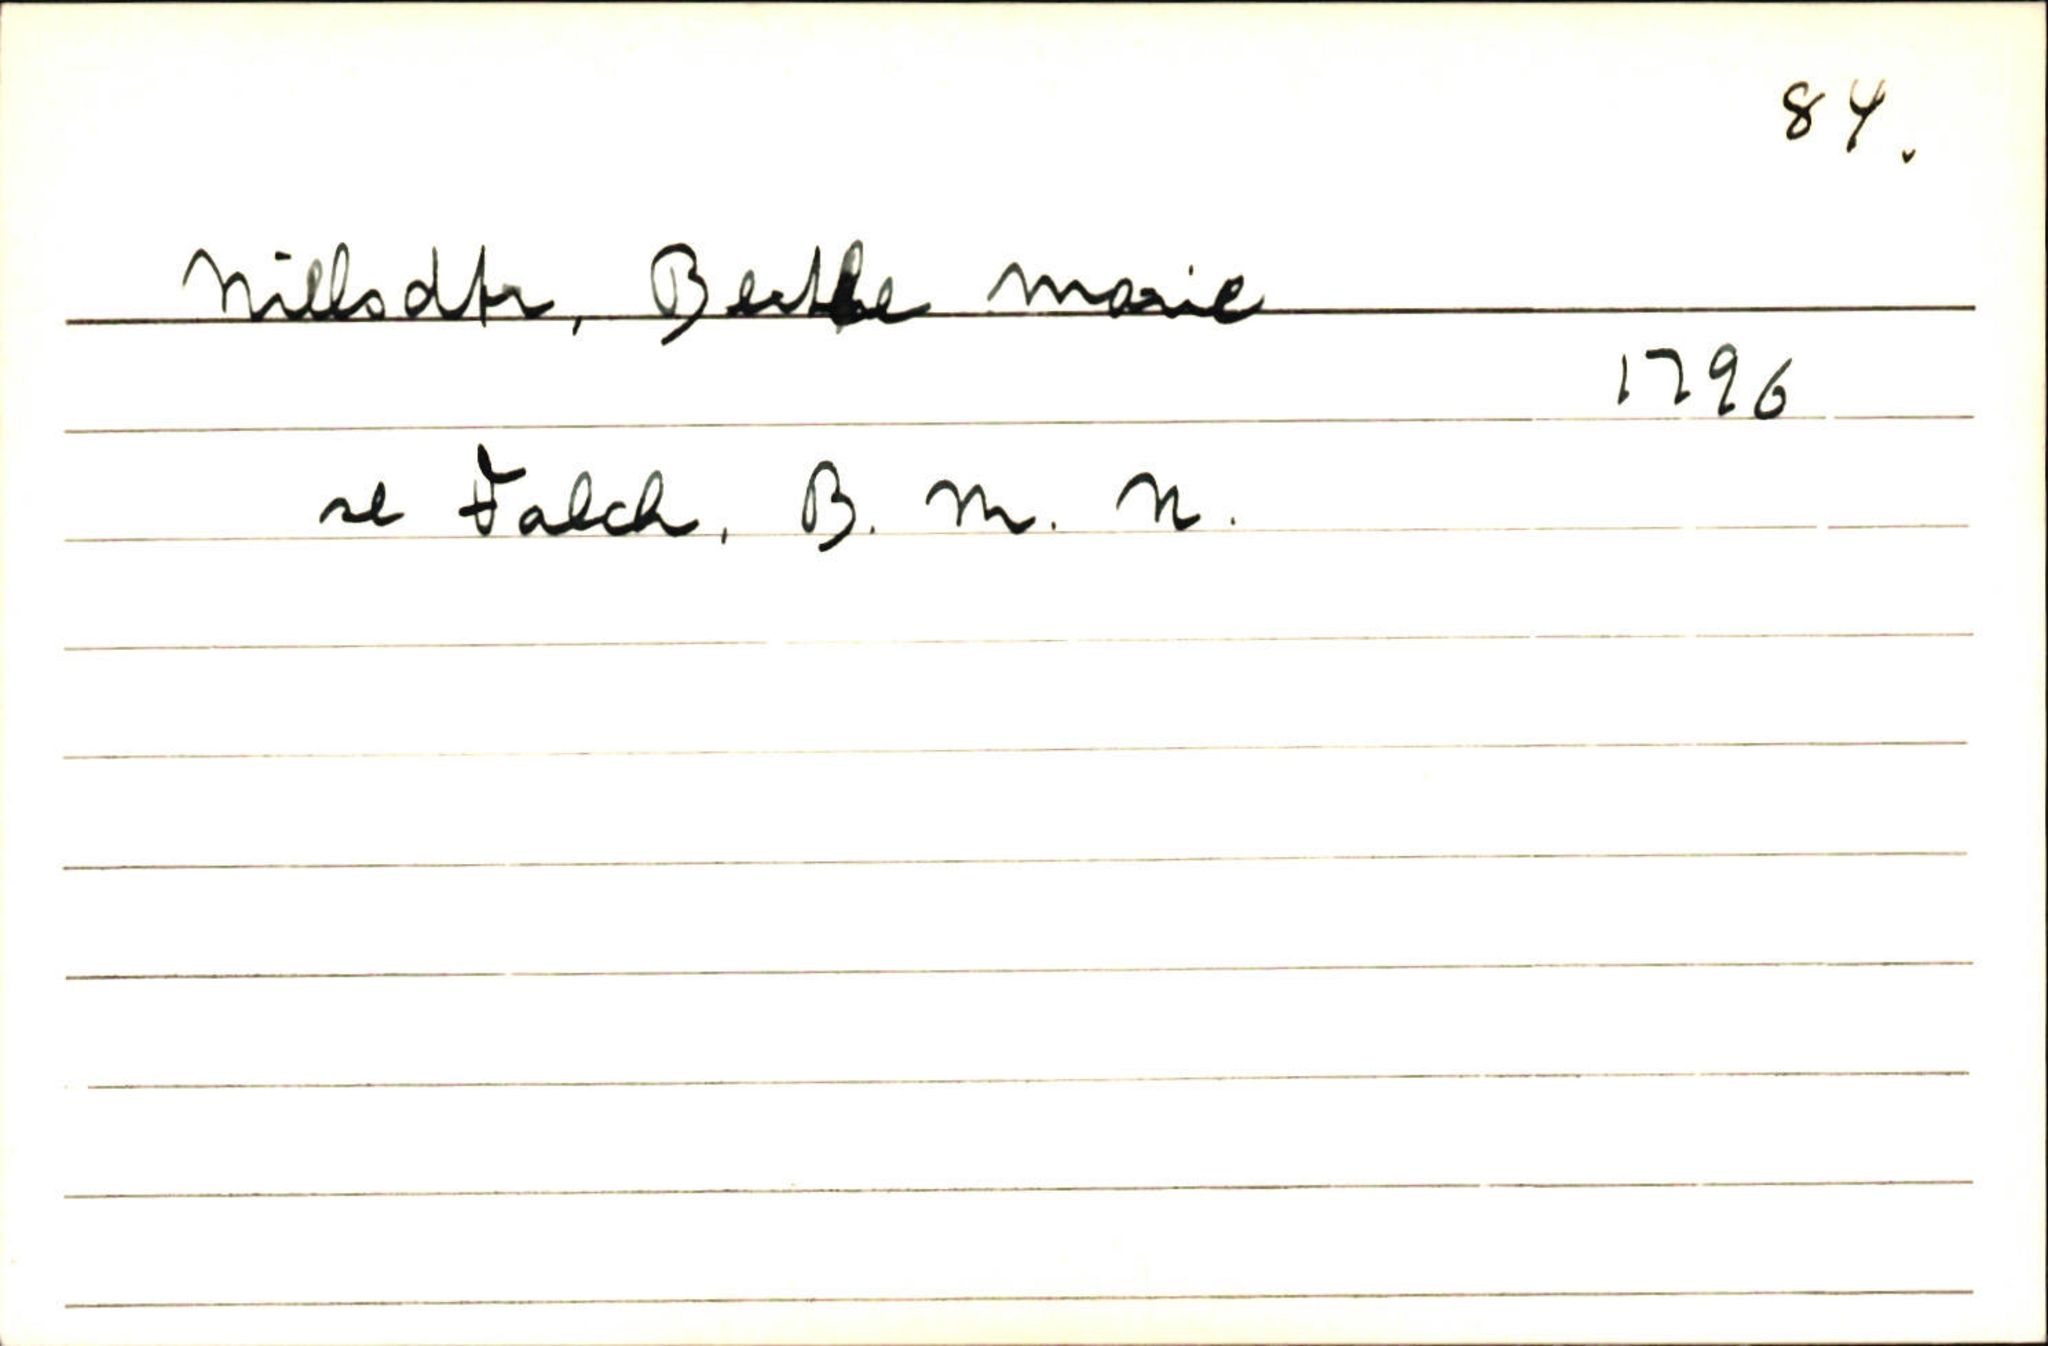 84.
Nillsdtr, Berthe Marie
1796
se Falch, B. M. N.